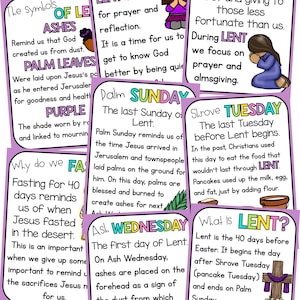 The symbols OF LE
ASHES
Remind us that God
created us from dust
PALM LEAVES
Were laid upon Jesus's p
as he entered Jerusale
for goodness and health
PURPLE
The shade worn by ro
and linked to mournin
for prayer and
reflection.
It is a time for us to
get to know God
better by being qui
those less
fortunate than us.
During LENT
we focus on
prayer and
almsgiving.
Palm SUNDAY
The last Sunday o
Lent.
Palm Sunday reminds us
of the time Jesus arrived in
Jerusalem and townspeople
laid palms on the ground for
him. On this day, palms are
blessed and burned to
create ashes for next
Shrove TUESDAY
The last Tuesday
before Lent begins.
In the past, Christians used
this day to eat the food that
wouldn't last through LENT.
Pancakes used up the milk, egg,
and fat, just by adding flour.
Why do we FA
Fasting for 40
days reminds
us of when
Jesus fasted
in the desert.
This is an important
when we give up some
important to remind u
the sacrifices Jesus
for us.
Ash WEDNESDAY
The first day of Lent.
On Ash Wednesday,
ashes are placed on the
forehead as a sign of
the dust from which
What is LENT?
Lent is the 40 days before
Easter. It begins the day
after Shrove Tuesday
(pancake Tuesday)
and ends on Palm
Sunday.